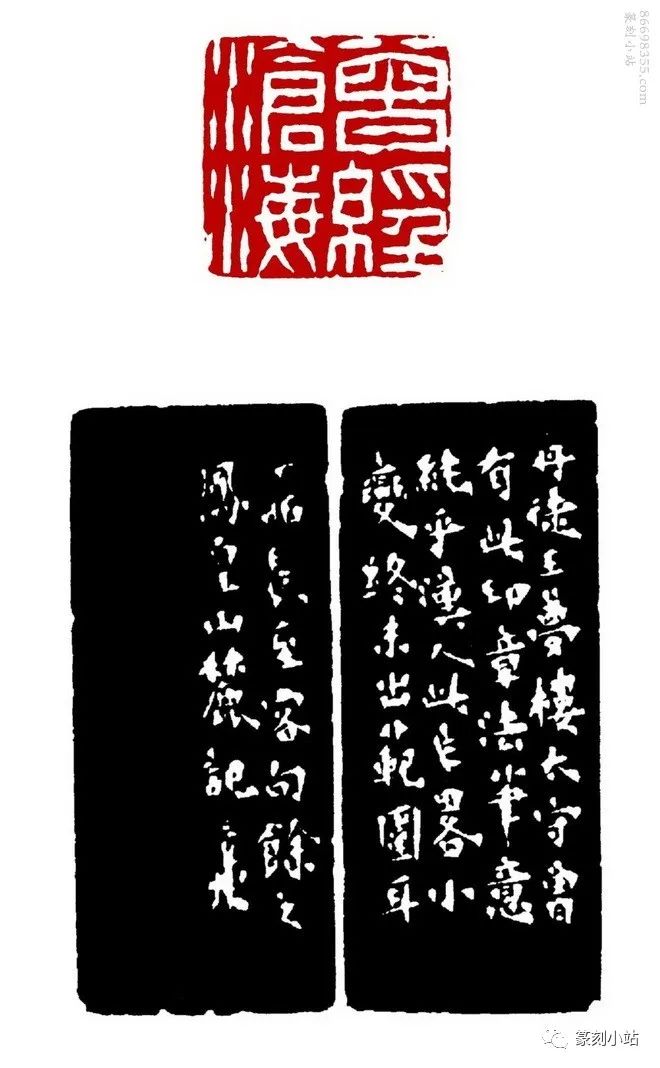 86698355.com
篆刻小站
曾經
滄海
丹徒王夢樓太守曾
有此印章法筆意
純乎漢人此作畧小
變終未出範圍耳
石長至客句餘之
鳳皇山麓記
篆刻小站